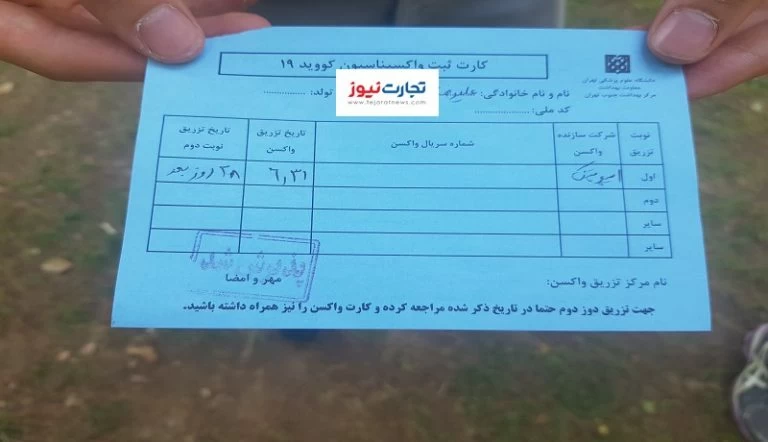 کارت ثبت واکسیناسیون کووید ۱۹
دانشگاه علوم پزشکی تهران
معاونت بهداشت
مرکز بهداشت جنوب تهران
نام و نام خانوادگی: تولد: ..............
کد ملی: ....................
تجارت‌نیوز
www.tejaratnews.com
نوبت تزریق شرکت سازنده واکسن شماره سریال واکسن تاریخ تزریق واکسن تاریخ تزریق نوبت دوم
اول ۶,۳۱ ۲۸ روز بعد
دوم
سایر
سایر
نام مرکز تزریق واکسن:
مهر و امضا
جهت تزریق دوز دوم حتما در تاریخ ذکر شده مراجعه کرده و کارت واکسن را نیز همراه داشته باشید.